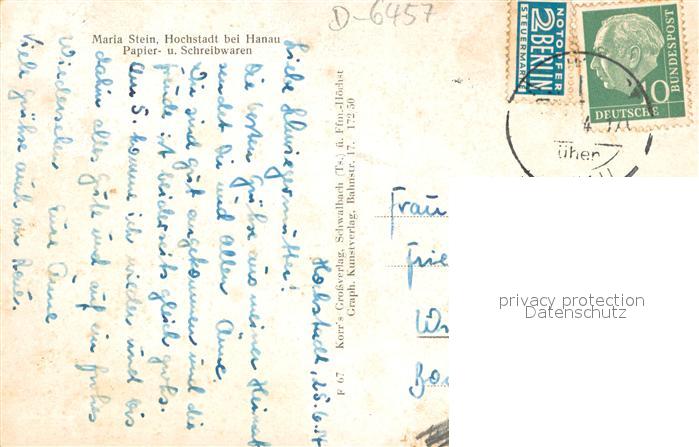 D-6457
Maria Stein, Hochstadt bei Hanau
Papier- u. Schreibwaren
Hochstadt, 25.6.54
Liebe Schwiegermutter!
Die besten Grüße aus meiner Heimat
sendet Dir und allen Anne.
Wir sind gut angekommen und die
Freude ist beiderseits gleich groß.
Am 5. komme ich wieder und bis
dahin alles Gute und auf ein frohes
Wiedersehen Eure Anne
Viele Grüße auch an
F 67 Korr's Großverlag, Schwalbach (Ts.) ü. Ffm.-Höchst
Graph. Kunstverlag, Bahnstr. 17. 172 50
NOTOPFER
2 BERLIN
STEUERMARKE
10
DEUTSCHE
BUNDESPOST
über
Frau
privacy protection
Datenschutz